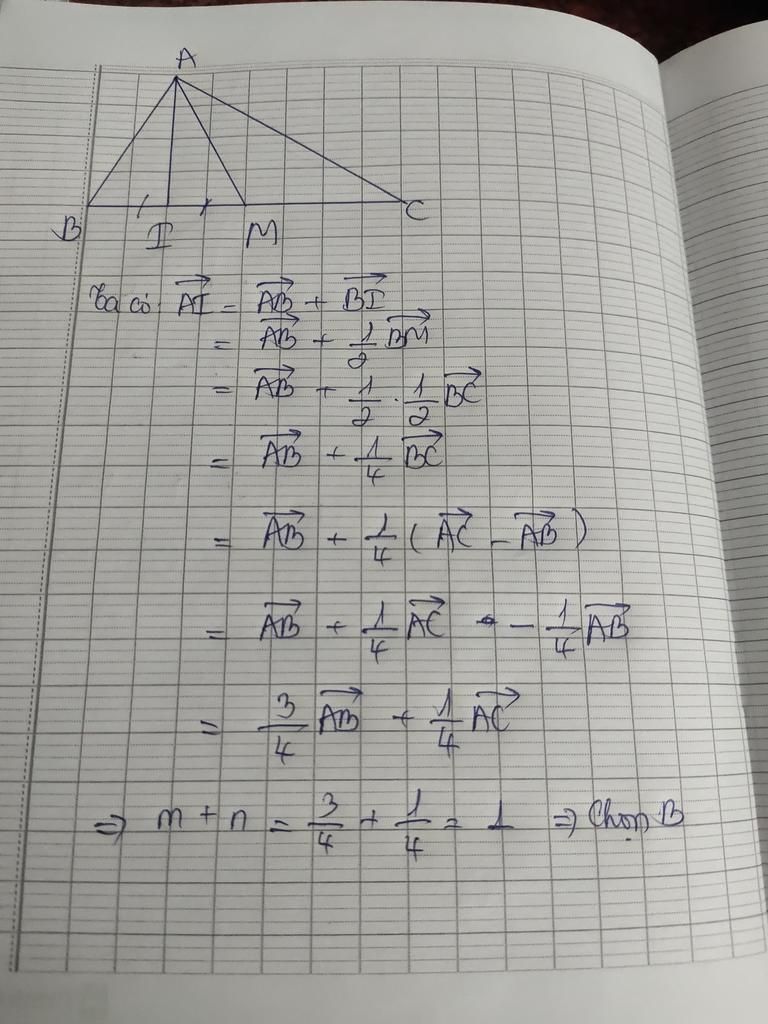 A
B I M C
Ta có: $\overrightarrow{AI} = \overrightarrow{AB} + \overrightarrow{BI}$
$= \overrightarrow{AB} + \frac{1}{2}\overrightarrow{BM}$
$= \overrightarrow{AB} + \frac{1}{2} \cdot \frac{1}{2}\overrightarrow{BC}$
$= \overrightarrow{AB} + \frac{1}{4}\overrightarrow{BC}$
$= \overrightarrow{AB} + \frac{1}{4}(\overrightarrow{AC} - \overrightarrow{AB})$
$= \overrightarrow{AB} + \frac{1}{4}\overrightarrow{AC} - \frac{1}{4}\overrightarrow{AB}$
$= \frac{3}{4}\overrightarrow{AB} + \frac{1}{4}\overrightarrow{AC}$
$\Rightarrow m + n = \frac{3}{4} + \frac{1}{4} = 1 \Rightarrow$ Chọn B